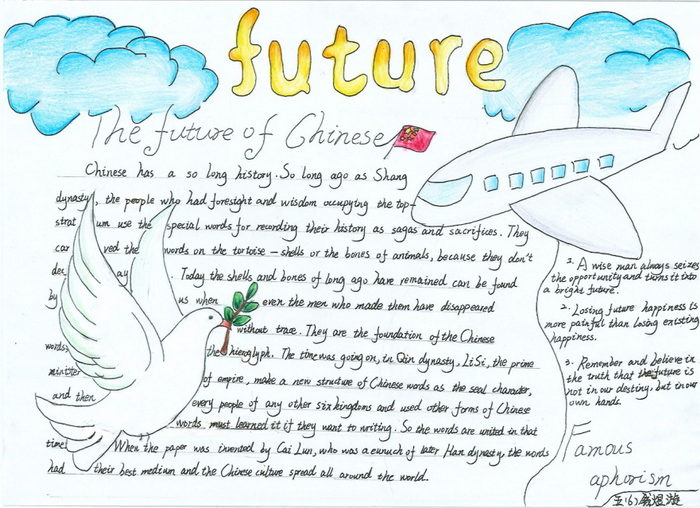 future
The future of Chinese
Chinese has a so long history. So long ago as Shang
dynasty, the people who had foresight and wisdom occupying the top-
strat um use the special words for recording their history as sagas and sacrifices. They
car ved the words on the tortoise-shells or the bones of animals, because they don't
dec ay . Today the shells and bones of long ago have remained can be found
by us when even the men who made them have disappeared
without trace. They are the foundation of the Chinese
words: the hieroglyph. The time was going on, in Qin dynasty, Li Si, the prime
minister of empire, make a new structure of Chinese words as the seal character,
and then every people of any other six kingdoms and used other forms of Chinese
words must learned it if they want to writing. So the words are united in that
time! When the paper was invented by Cai Lun, who was a eunuch of later Han dynasty, the words
had their best medium and the Chinese culture spread all around the world.
1. A wise man always seizes
the opportunity and turns it into
a bright future.
2. Losing future happiness is
more painful than losing existing
happiness.
3. Remember and believe in
the truth that the future is
not in our destiny, but in our
own hands.
Famous
aphorism
五(6)